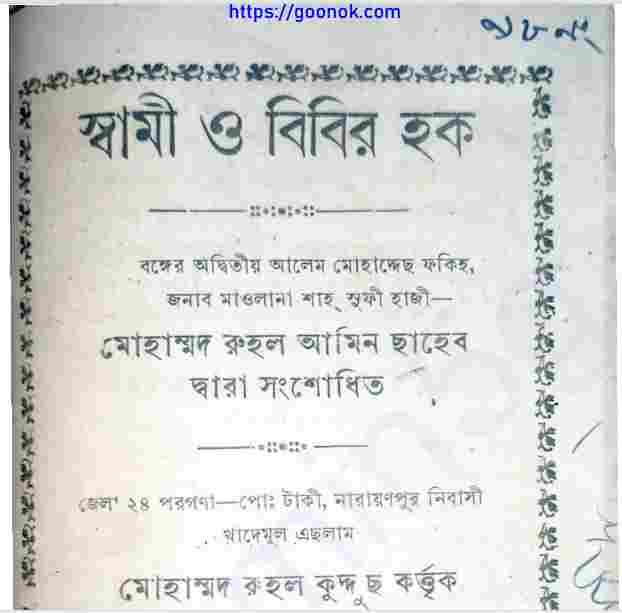 https://goonok.com
স্বামী ও বিবির হক
বঙ্গের অদ্বিতীয় আলেম মোহাদ্দেছ ফকিহ,
জনাব মাওলানা শাহ্ সুফী হাজী—
মোহাম্মদ রুহুল আমিন ছাহেব
দ্বারা সংশোধিত
জেলা ২৪ পরগণা—পোঃ টাকী, নারায়ণপুর নিবাসী
খাদেমুল এছলাম
মোহাম্মদ রুহুল কুদ্দুছ কর্ত্তৃক